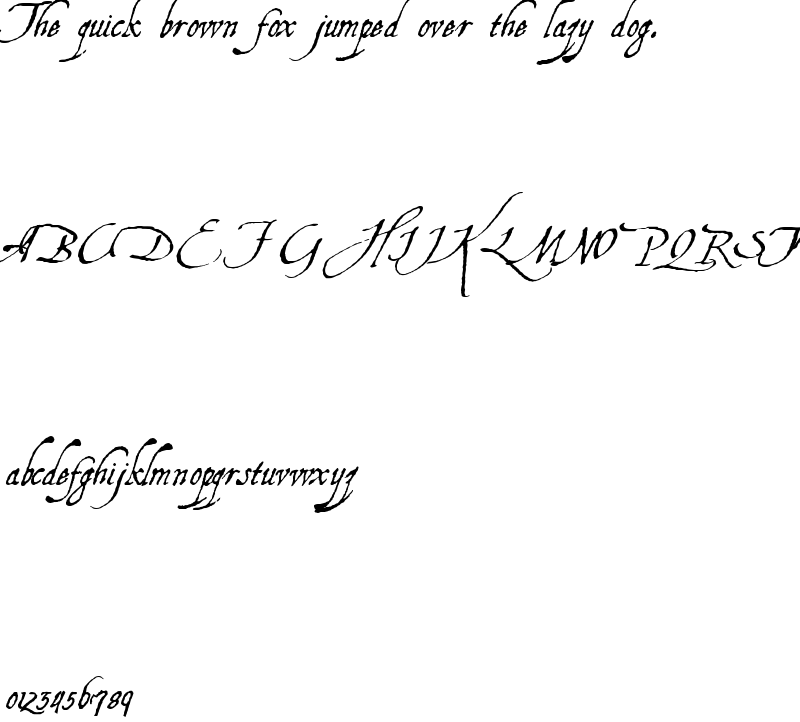 The quick brown fox jumped over the lazy dog.
ABCDEFGHIJKLMNOPQRST
abcdefghijklmnopqrstuvwxyz
0123456789